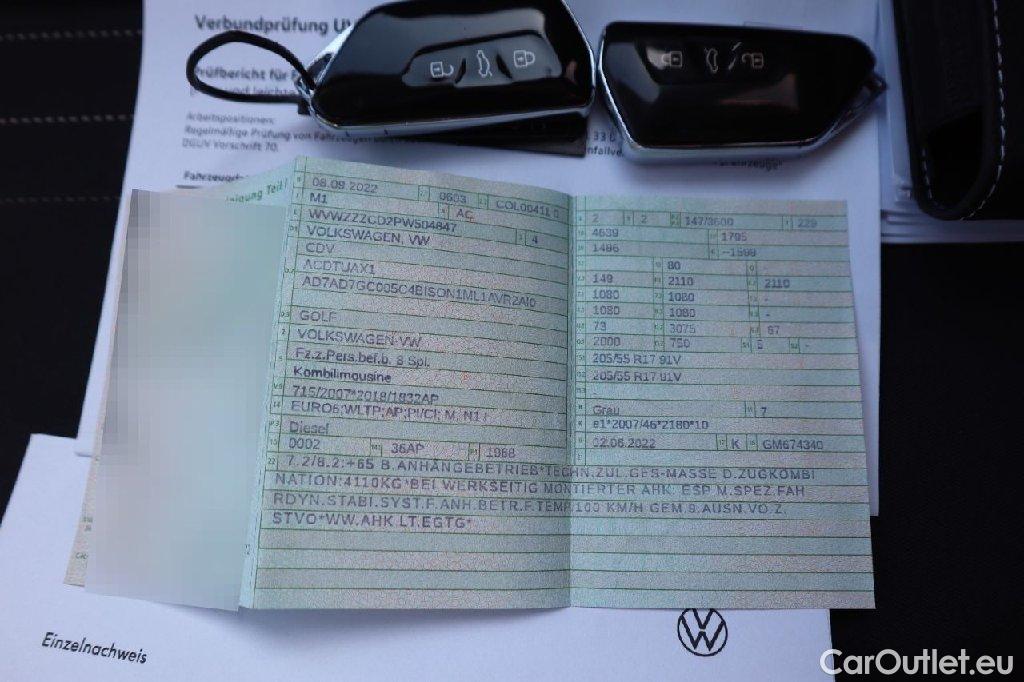 Verbundprüfung UV
Prüfbericht für F
und leichte
Arbeitspositionen:
Regelmäßige Prüfung von Fahrzeugen
DGUV Vorschrift 70.
Fahrzeugd
Teil I
08.09.2022 0603
M1 AC
WVWZZZCD2PW504847 4
VOLKSWAGEN, VW
CDV
ACDTUAX1
GOLF
VOLKSWAGEN-VW
Fz.z.Pers.bef.b. 8 Spl.
Kombilimousine
715/2007*2018/1832AP
EURO6;WLTP;AP;PI/CI; M, N1 I
Diesel
0002 36AP 1968
2 2 147/3600 229
4639 1795
1486 –1599
80
149 2110 2110
1080 1080 -
1080 1080 -
73 3075 67
2000 750 5 -
205/55 R17 91V
205/55 R17 91V
Grau 7
e1*2007/46*2180*10
02.06.2022 K GM674340
7.2/8.2:+65 B.ANHÄNGEBETRIEB*TECHN.ZUL.GES-MASSE D.ZUGKOMBI
NATION:4110KG*BEI WERKSEITIG MONTIERTER AHK: ESP M.SPEZ.FAH
RDYN.STABI.SYST.F.ANH.BETR.F.TEMP100 KM/H GEM.9.AUSN.VO.Z.
STVO*WW.AHK LT.EGTG*
Einzelnachweis
CarOutlet.eu